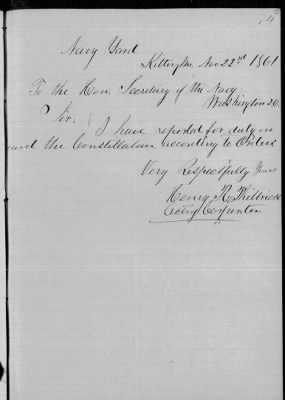 Navy Yard
Kittery Me Nov 22nd 1861
To the Hon. Secretary of the Navy
Washington DC
Sir: I have reported for duty on
the Constellation according to Orders
Very Respectfully Yours
Henry R. Philbrick
Acting Carpenter